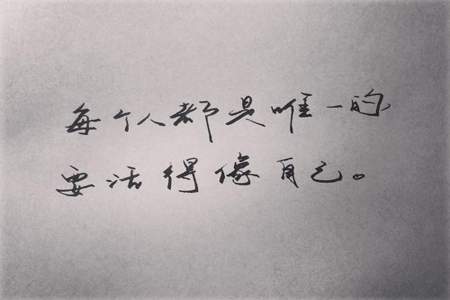 每个人都是唯一的
要活得像自己。